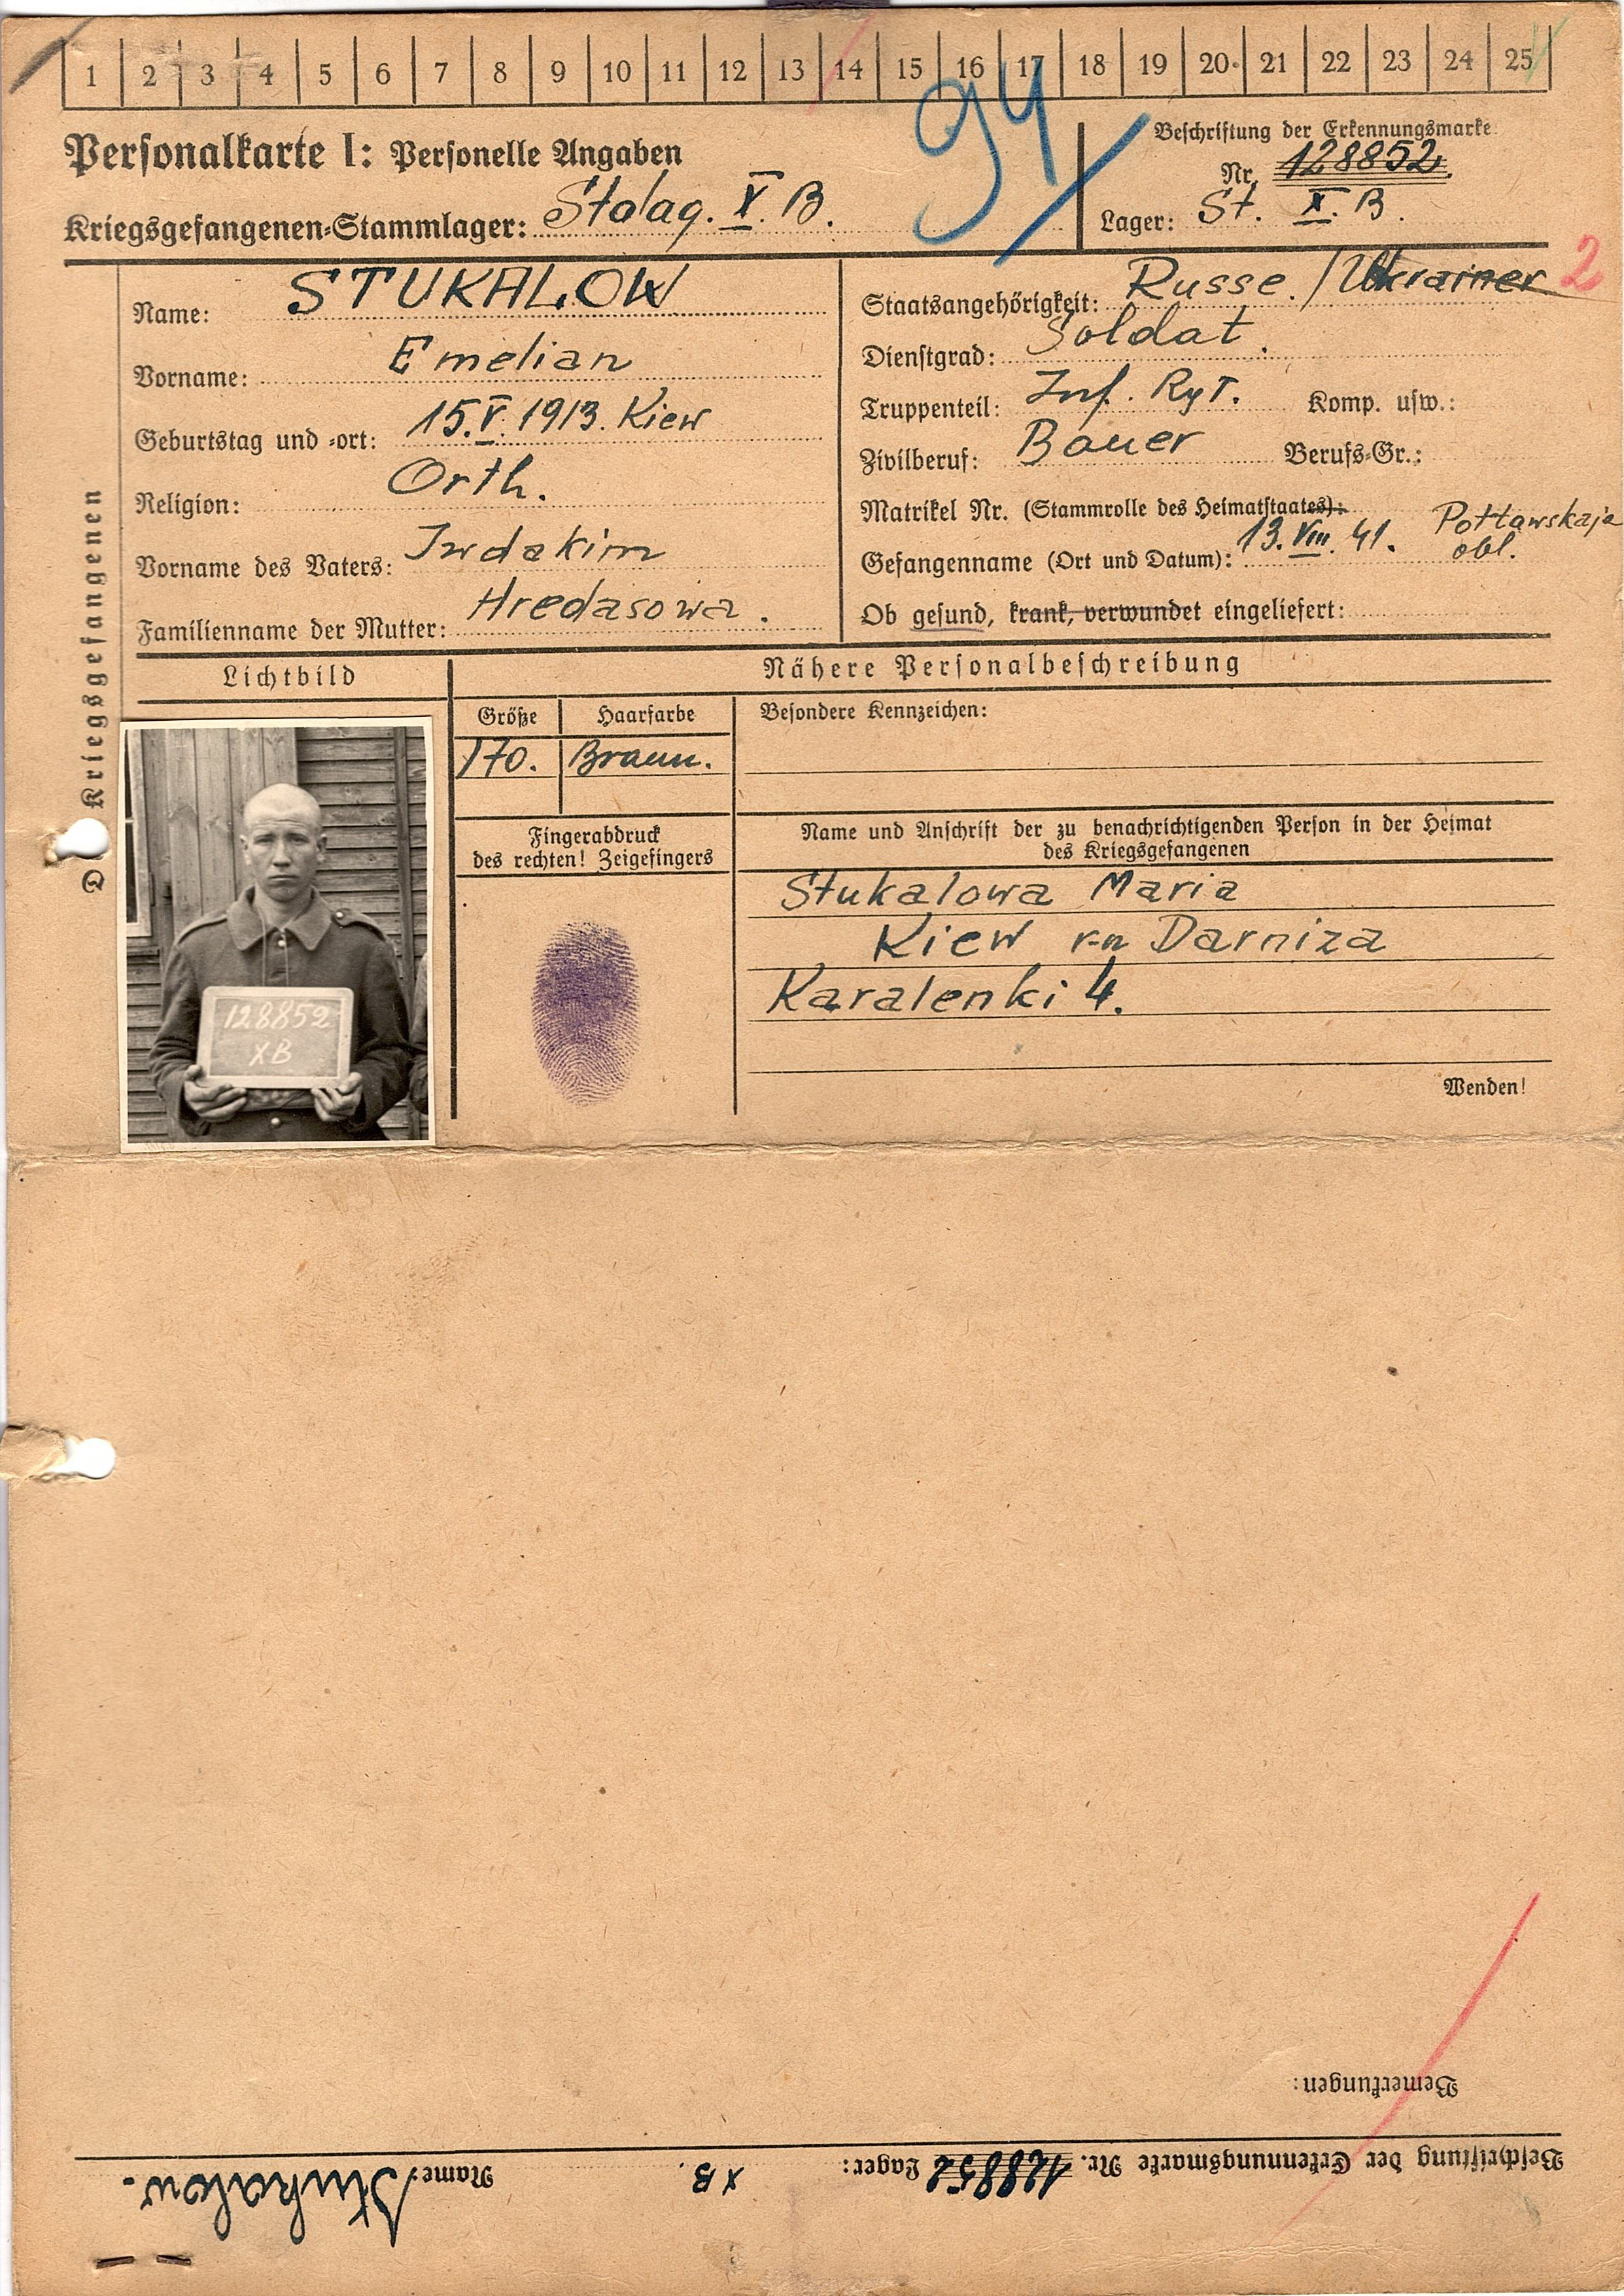 1 2 3 4 5 6 7 8 9 10 11 12 13 14 15 16 17 18 19 20 21 22 23 24 25
94
Personalkarte I: Personelle Angaben
Kriegsgefangenen-Stammlager: Stalag. X. B.
Beschriftung der Erkennungsmarke
Nr. 128852.
Lager: St. X. B.
Des Kriegsgefangenen
Name: STUKALOW
Vorname: Emelian
Geburtstag und -ort: 15.V. 1913. Kiew
Religion: Orth.
Vorname des Vaters: Iwdakim
Familienname der Mutter: Hredasowa.
Staatsangehörigkeit: Russe. / Ukrainer 2
Dienstgrad: Soldat.
Truppenteil: Inf. Rgt. Komp. usw.:
Zivilberuf: Bauer Berufs-Gr.:
Matrikel Nr. (Stammrolle des Heimatstaates):
Gefangenname (Ort und Datum): 13. VIII. 41. Poltawskaja
obl.
Ob gesund, krank, verwundet eingeliefert:
Lichtbild
128852
XB
Nähere Personalbeschreibung
Größe Haarfarbe
170. Braun.
Besondere Kennzeichen:
Fingerabdruck
des rechten! Zeigefingers
Name und Anschrift der zu benachrichtigenden Person in der Heimat
des Kriegsgefangenen
Stukalowa Maria
Kiew r-n Darniza
Karalenki 4.
Wenden!
Bemerkungen:
Beschriftung der Erkennungsmarke Nr. 128852 Lager: XB. Name: Stukalow.